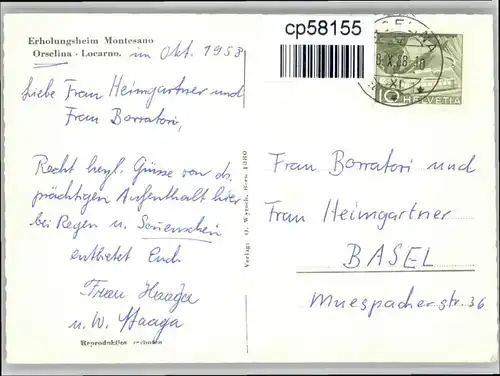 Erholungsheim Montesano
Orselina - Locarno. im Okt. 1958
Liebe Frau Heimgartner und
Frau Borratori,
Recht herzl. Grüsse von ds.
prächtigen Aufenthalt hier
bei Regen u. Sonnenschein
entbietet Euch
Frau Haaga
u. W. Haaga
Reproduktion verboten
Verlag: O. Wyrsch, Bern 1080
cp58155
ORSELINA
10 HELVETIA
Frau Borratori und
Frau Heimgartner
BASEL
Muespacherstr. 36